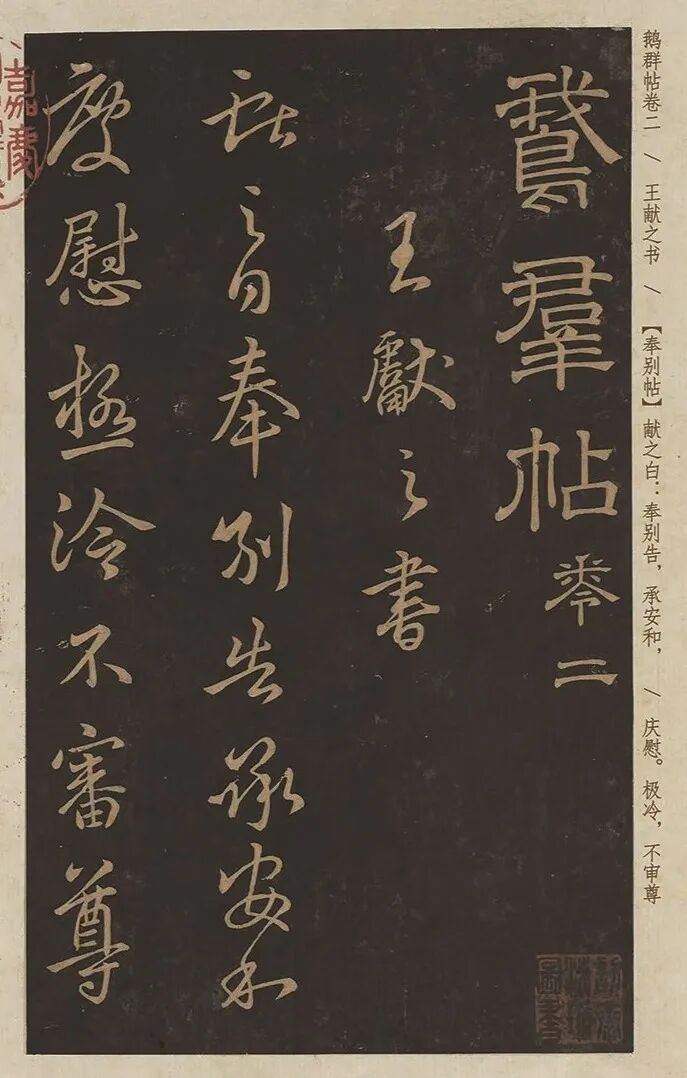 鹅群帖卷二 \ 王献之书 \ 【奉别帖】献之白：奉别告，承安和， \ 庆慰。极冷，不审尊
鵞羣帖卷二
王獻之書
献之白奉別告承安和
慶慰極冷不審尊